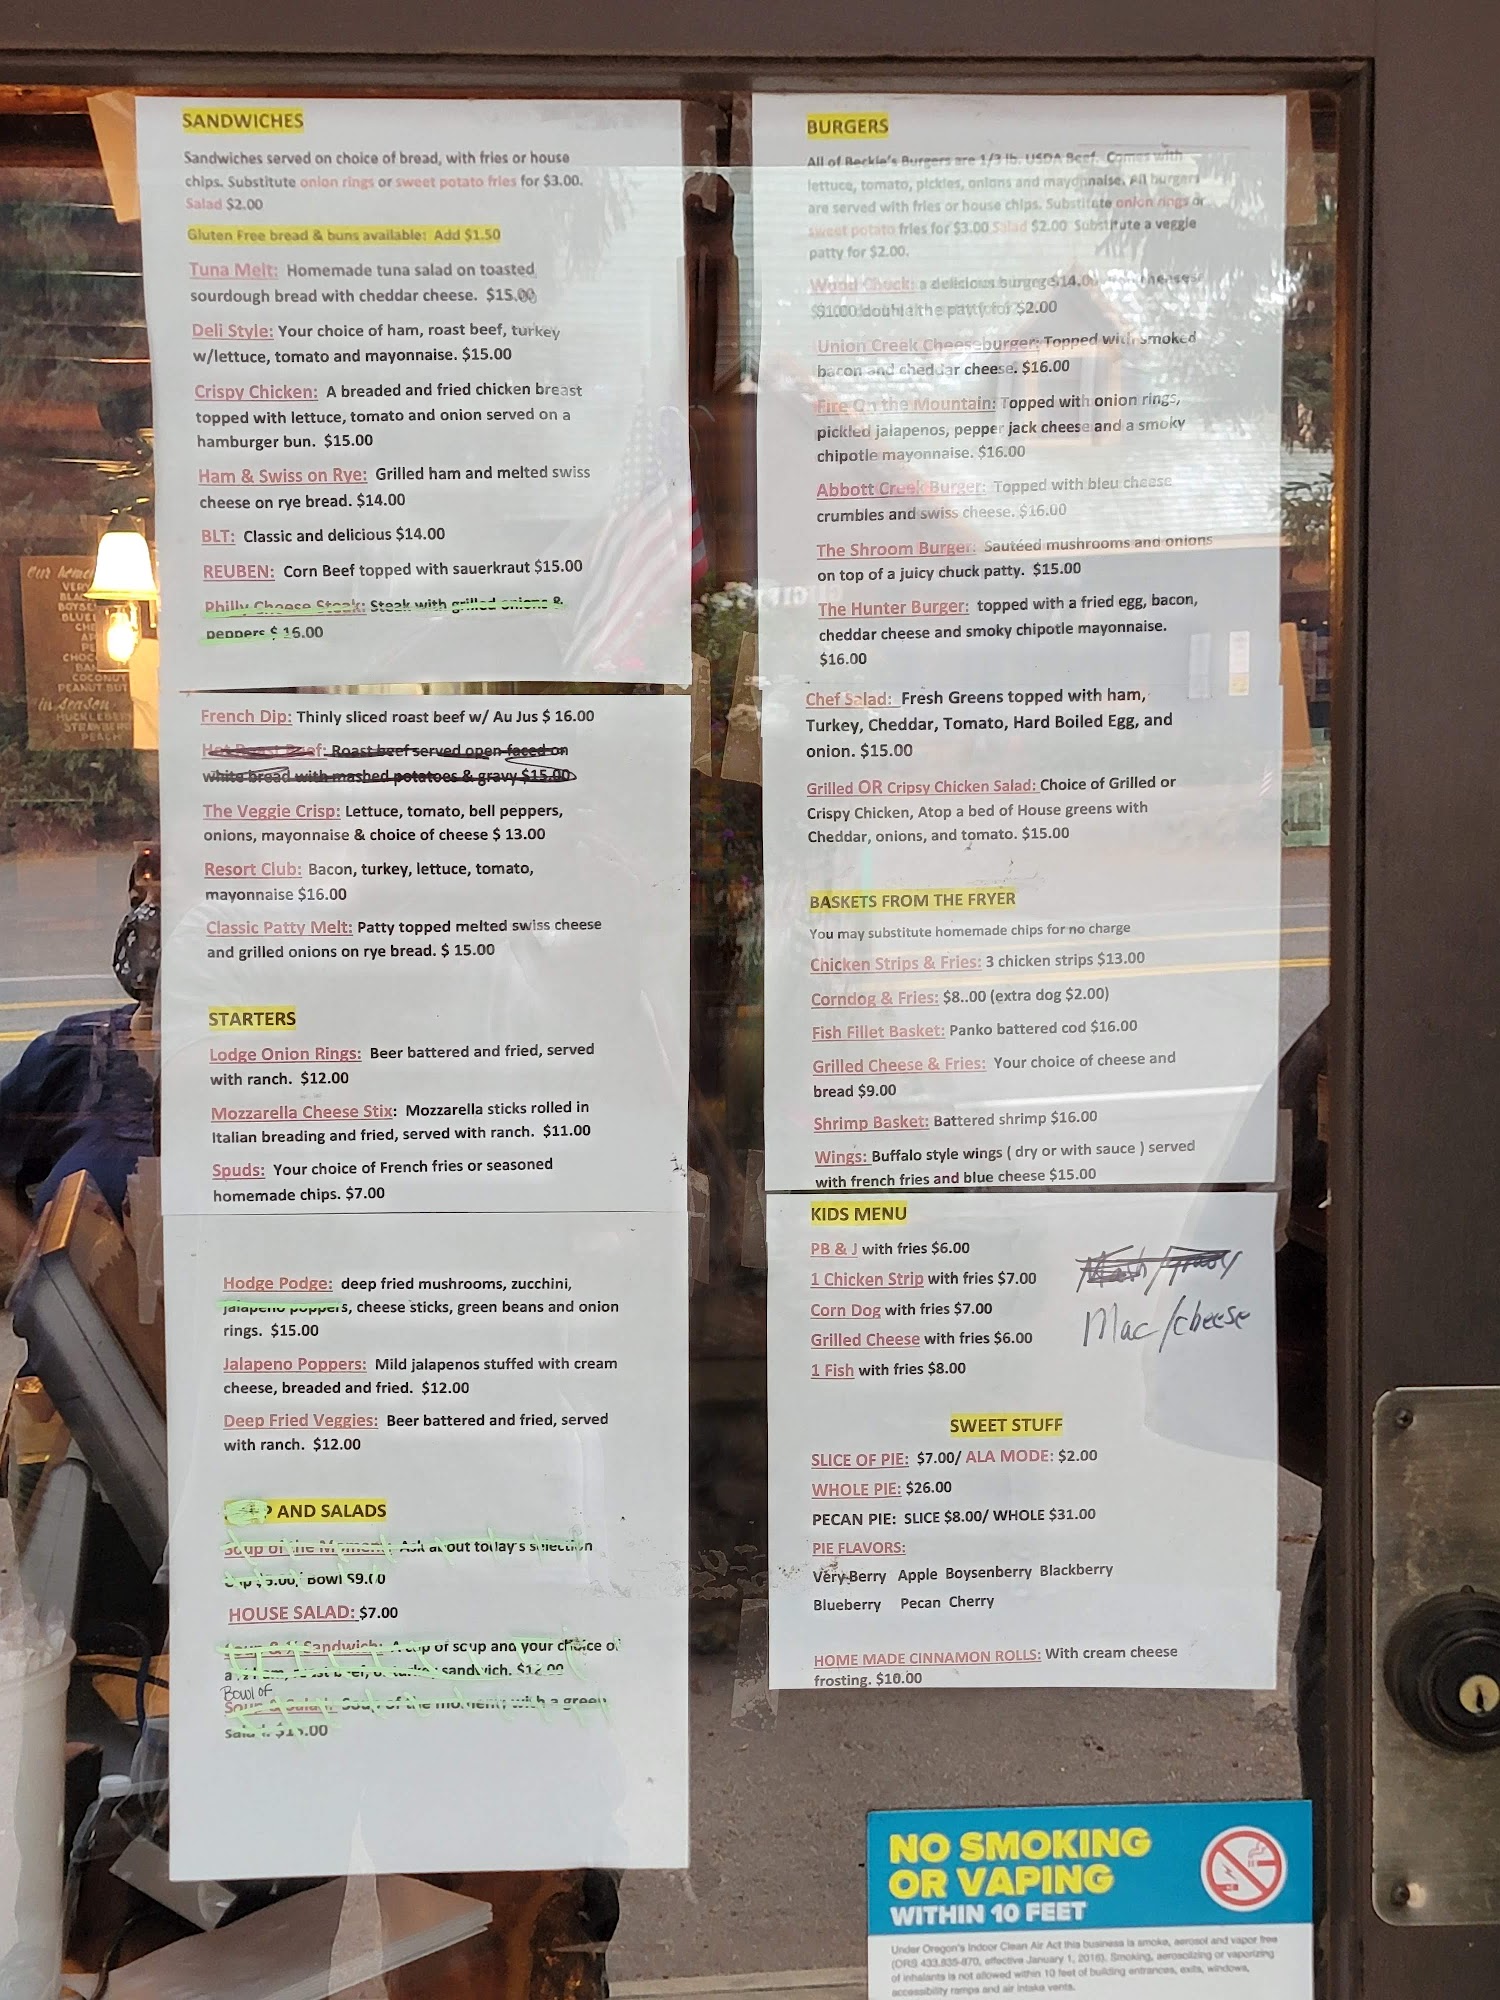 SANDWICHES
Sandwiches served on choice of bread, with fries or house
chips. Substitute onion rings or sweet potato fries for $3.00.
Salad $2.00
Gluten Free bread & buns available: Add $1.50
Tuna Melt: Homemade tuna salad on toasted
sourdough bread with cheddar cheese. $15.00
Deli Style: Your choice of ham, roast beef, turkey
w/lettuce, tomato and mayonnaise. $15.00
Crispy Chicken: A breaded and fried chicken breast
topped with lettuce, tomato and onion served on a
hamburger bun. $15.00
Ham & Swiss on Rye: Grilled ham and melted swiss
cheese on rye bread. $14.00
BLT: Classic and delicious $14.00
REUBEN: Corn Beef topped with sauerkraut $15.00
Philly Cheese Steak: Steak with grilled onions &
peppers $ 16.00
French Dip: Thinly sliced roast beef w/ Au Jus $ 16.00
Hot Roast Beef: Roast beef served open faced on
white bread with mashed potatoes & gravy $15.00
The Veggie Crisp: Lettuce, tomato, bell peppers,
onions, mayonnaise & choice of cheese $ 13.00
Resort Club: Bacon, turkey, lettuce, tomato,
mayonnaise $16.00
Classic Patty Melt: Patty topped melted swiss cheese
and grilled onions on rye bread. $ 15.00
STARTERS
Lodge Onion Rings: Beer battered and fried, served
with ranch. $12.00
Mozzarella Cheese Stix: Mozzarella sticks rolled in
Italian breading and fried, served with ranch. $11.00
Spuds: Your choice of French fries or seasoned
homemade chips. $7.00
Hodge Podge: deep fried mushrooms, zucchini,
jalapeno poppers, cheese sticks, green beans and onion
rings. $15.00
Jalapeno Poppers: Mild jalapenos stuffed with cream
cheese, breaded and fried. $12.00
Deep Fried Veggies: Beer battered and fried, served
with ranch. $12.00
AND SALADS
Soup of the Moment: Ask about today's selection
Bowl $9.00
HOUSE SALAD: $7.00
Sandwich: A cup of soup and your choice of
sandwich. $12.00
Bowl of
Soup & Salad: Soup of the moment with a green
BURGERS
All of Beckie's Burgers are 1/3 lb. USDA Beef. Comes with
lettuce, tomato, pickles, onions and mayonnaise. All burgers
are served with fries or house chips. Substitute onion rings or
sweet potato fries for $3.00 Salad $2.00 Substitute a veggie
patty for $2.00.
Wood Chuck: a delicious burger $14.00
$1.00 double the patty for $2.00
Union Creek Cheeseburger: Topped with smoked
bacon and cheddar cheese. $16.00
Fire On the Mountain: Topped with onion rings,
pickled jalapenos, pepper jack cheese and a smoky
chipotle mayonnaise. $16.00
Abbott Creek Burger: Topped with bleu cheese
crumbles and swiss cheese. $16.00
The Shroom Burger: Sautéed mushrooms and onions
on top of a juicy chuck patty. $15.00
The Hunter Burger: topped with a fried egg, bacon,
cheddar cheese and smoky chipotle mayonnaise.
$16.00
Chef Salad: Fresh Greens topped with ham,
Turkey, Cheddar, Tomato, Hard Boiled Egg, and
onion. $15.00
Grilled OR Cripsy Chicken Salad: Choice of Grilled or
Crispy Chicken, Atop a bed of House greens with
Cheddar, onions, and tomato. $15.00
BASKETS FROM THE FRYER
You may substitute homemade chips for no charge
Chicken Strips & Fries: 3 chicken strips $13.00
Corndog & Fries: $8..00 (extra dog $2.00)
Fish Fillet Basket: Panko battered cod $16.00
Grilled Cheese & Fries: Your choice of cheese and
bread $9.00
Shrimp Basket: Battered shrimp $16.00
Wings: Buffalo style wings ( dry or with sauce ) served
with french fries and blue cheese $15.00
KIDS MENU
PB & J with fries $6.00
1 Chicken Strip with fries $7.00
Corn Dog with fries $7.00
Grilled Cheese with fries $6.00
1 Fish with fries $8.00
Mash/Gravy
Mac/cheese
SWEET STUFF
SLICE OF PIE: $7.00/ ALA MODE: $2.00
WHOLE PIE: $26.00
PECAN PIE: SLICE $8.00/ WHOLE $31.00
PIE FLAVORS:
Very Berry Apple Boysenberry Blackberry
Blueberry Pecan Cherry
HOME MADE CINNAMON ROLLS: With cream cheese
frosting. $10.00
NO SMOKING
OR VAPING
WITHIN 10 FEET
Under Oregon's Indoor Clean Air Act this business is smoke, aerosol and vapor free
(ORS 433.835-870, effective January 1, 2016). Smoking, aerosolizing or vaporizing
of inhalants is not allowed within 10 feet of building entrances, exits, windows,
accessibility ramps and air intake vents.